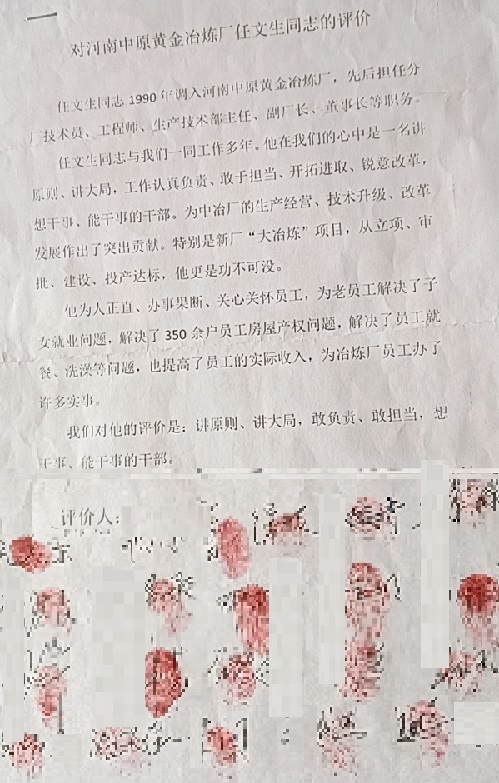 对河南中原黄金冶炼厂任文生同志的评价
任文生同志 1990 年调入河南中原黄金冶炼厂，先后担任分
厂技术员、工程师、生产技术部主任、副厂长、董事长等职务。
任文生同志与我们一同工作多年。他在我们的心中是一名讲
原则、讲大局，工作认真负责、敢于担当、开拓进取、锐意改革，
想干事、能干事的干部。为中冶厂的生产经营、技术升级、改革
发展作出了突出贡献。特别是新厂“大冶炼”项目，从立项、审
批、建设、投产达标，他更是功不可没。
他为人正直、办事果断、关心关怀员工，为老员工解决了子
女就业问题，解决了 350 余户员工房屋产权问题，解决了员工就
餐、洗澡等问题，也提高了员工的实际收入，为冶炼厂员工办了
许多实事。
我们对他的评价是：讲原则、讲大局，敢负责、敢担当，想
干事、能干事的干部。
评价人：